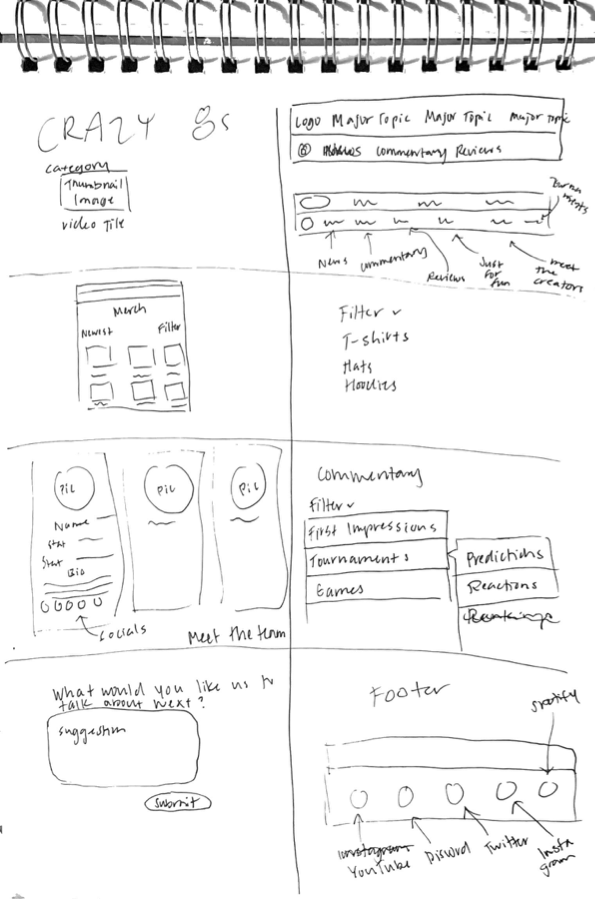 CRAZY 8s
category
Thumbnail
Image
video Title
Logo Major Topic Major Topic Major Topic
Commentary Reviews
News
commentary
Reviews
Just
for
fun
meet
the
creators
Merch
Newest Filter
Filter
T-shirts
Hats
Hoodies
Pic
Name
Stat
Stat
Bio
socials
Pic
Pic
Meet the team
Commentary
Filter
First Impressions
Tournaments
Games
Predictions
Reactions
Rankings
What would you like us to
talk about next?
suggestion
submit
Footer
spotify
Instagram
YouTube
Discord
Twitter
Insta
gram